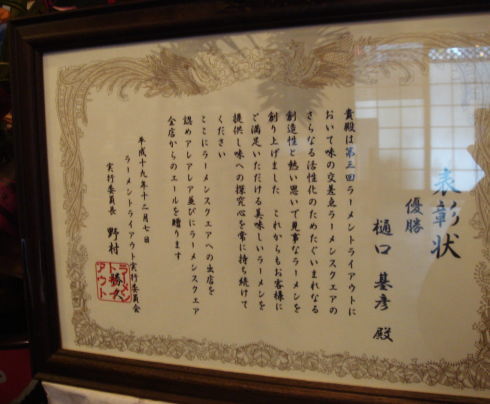 表彰状
優勝
樋口 基彦 殿
貴殿は第三回ラーメントライアウトに
おいて味の交差点ラーメンスクエアの
さらなる活性化のためたぐいまれなる
創造性と熱い思いで見事なラーメンを
創り上げました これからもお客様に
ご満足いただける美味しいラーメンを
提供し味への探究心を常に持ち続けて
ください
ここにラーメンスクエアへの出店を
認めアレアレア並びにラーメンスクエア
全店からのエールを贈ります
平成十九年十二月七日
ラーメントライアウト実行委員会
実行委員長 野村